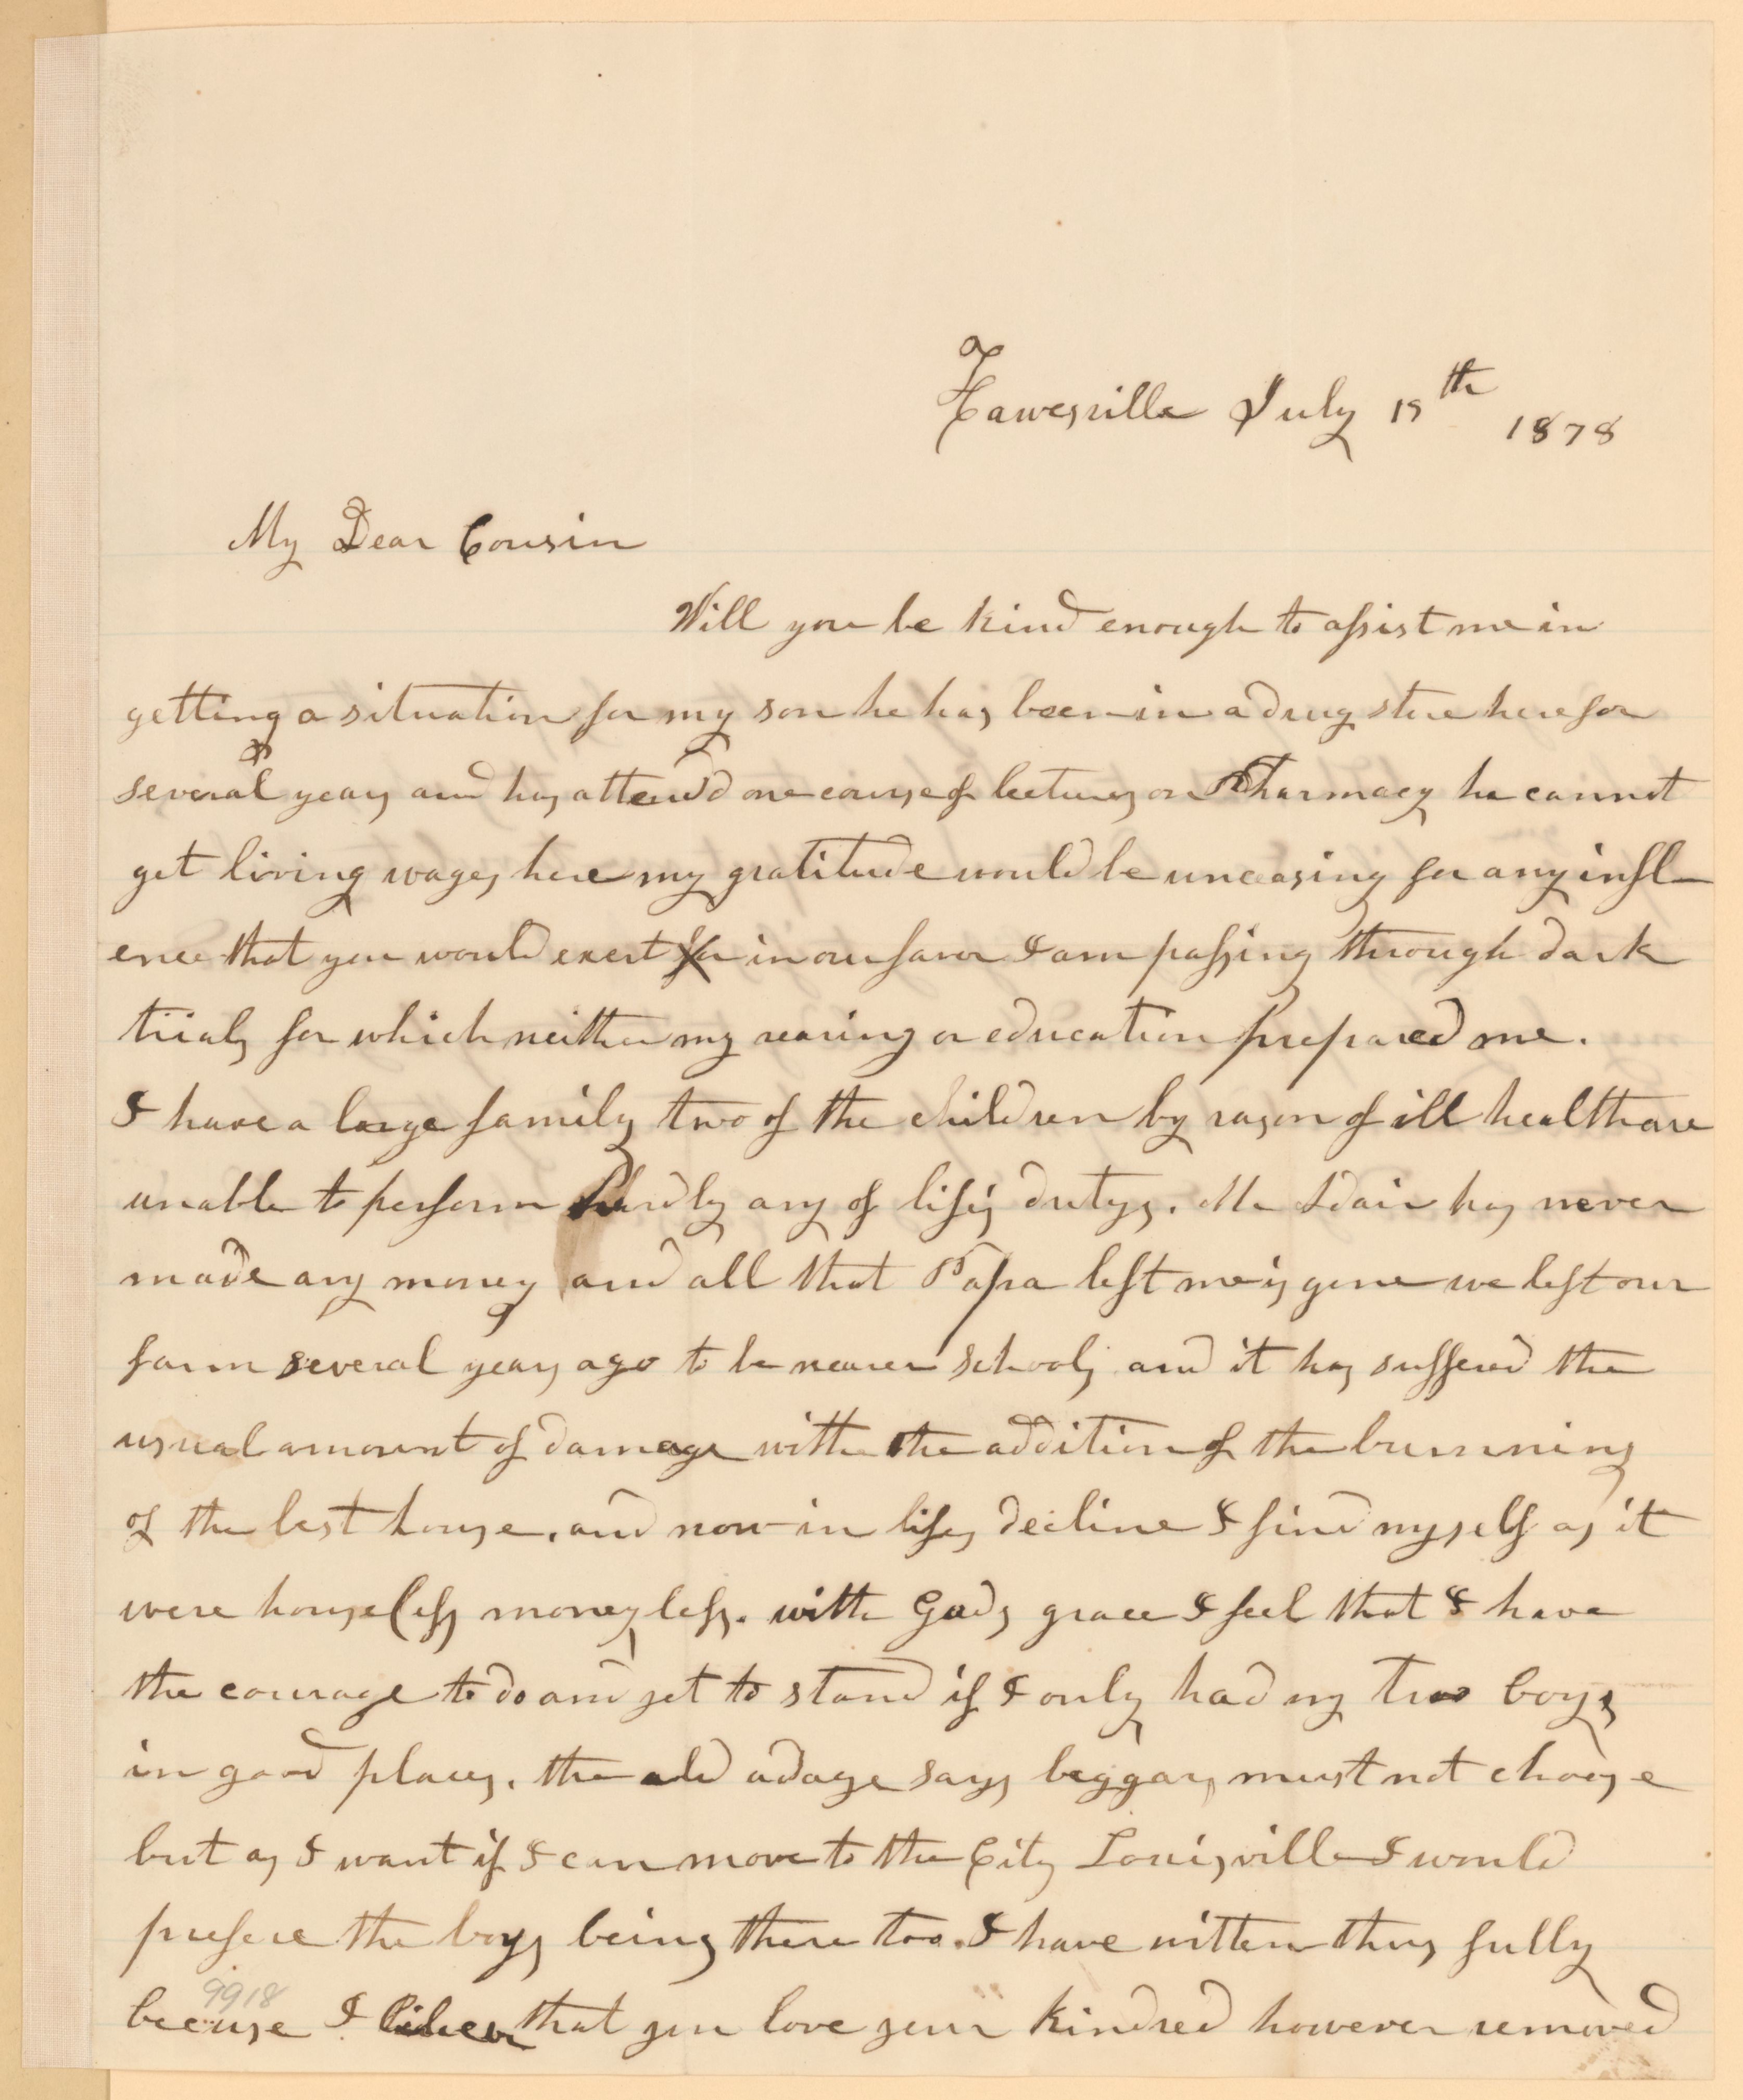 Hawesville July 19th 1878
My Dear Cousin
Will you be kind enough to assist me in
getting a situation for my son he has been in a drug store here for
several years and has attend'd one course of lectures on Pharmacy he cannot
get living wages here my gratitude would be unceasing for any infl-
ence that you would exert for in our favor I am passing through dark
trials for which neither my rearing or education prepared me.
I have a large family two of the children by rason of ill health are
unable to perform hardly any of life's dutys. Mr Adair has never
made any money and all that Papa left me is gone we left our
farm several years ago to be nearer schools and it has suffered the
usual amount of damage with the addition of the burnning
of the best house. and now in lifes decline I find myself as it
were houseless moneyless. with Gods grace I feel that I have
the courage to do and yet to stand if I only had my two boys
in good places. the old adage says beggars must not choose
but as I want if I can move to the City Louisville I would
prefere the boys being there too. I have written thus fully
9918
becuse I believ that you love your kindred however removed